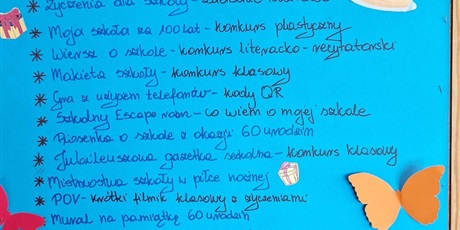 * Życzenia dla szkoły -
* Moja szkoła za 100 lat - konkurs plastyczny
* Wiersz o szkole - konkurs literacko - recytatorski
* Makieta szkoły - konkurs klasowy
* Gra z użyciem telefonów - kody QR
* Szkolny Escape room - co wiem o mojej szkole
* Piosenka o szkole z okazji 60 urodzin
* Jubileuszowa gazetka szkolna - konkurs klasowy
* Mistrzostwa szkoły w piłce nożnej
* POV - krótki filmik klasowy z życzeniami
* Mural na pamiątkę 60 urodzin